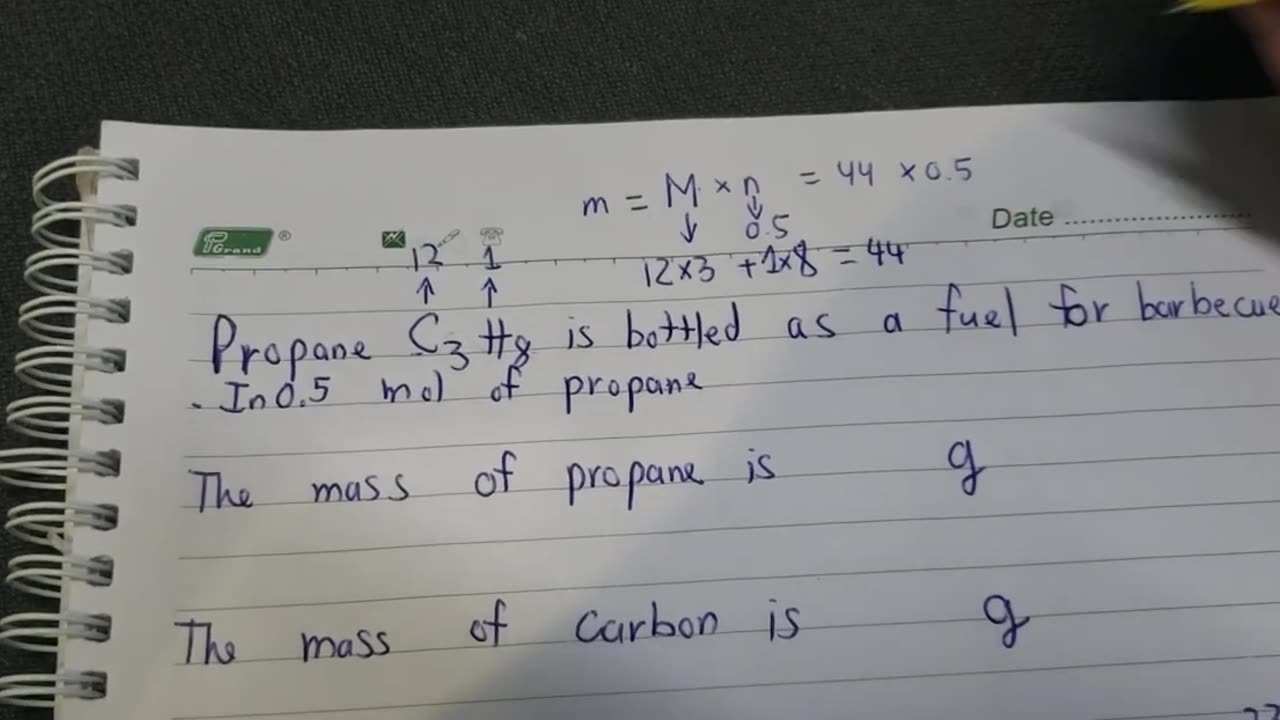 m = M × n = 44 × 0.5
↓ ↓
0.5
Date
PGrand ®
12 1
12×3 + 1×8 = 44
↑ ↑
Propane C3H8 is bottled as a fuel for barbecue
. In 0.5 mol of propane
The mass of propane is g
The mass of carbon is g